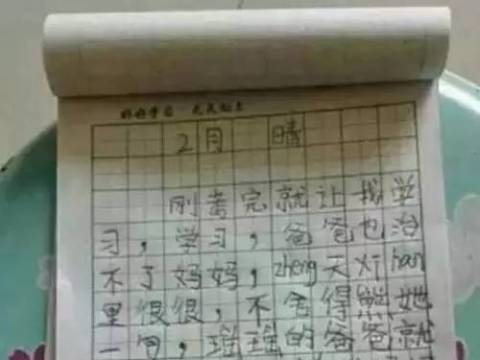 好好学习 天天向上
2月 晴
刚考完就让我学
习，学习，爸爸也治
不了妈妈，zheng天 han
里很很，不舍得熊她
一句，瑶瑶的爸爸就